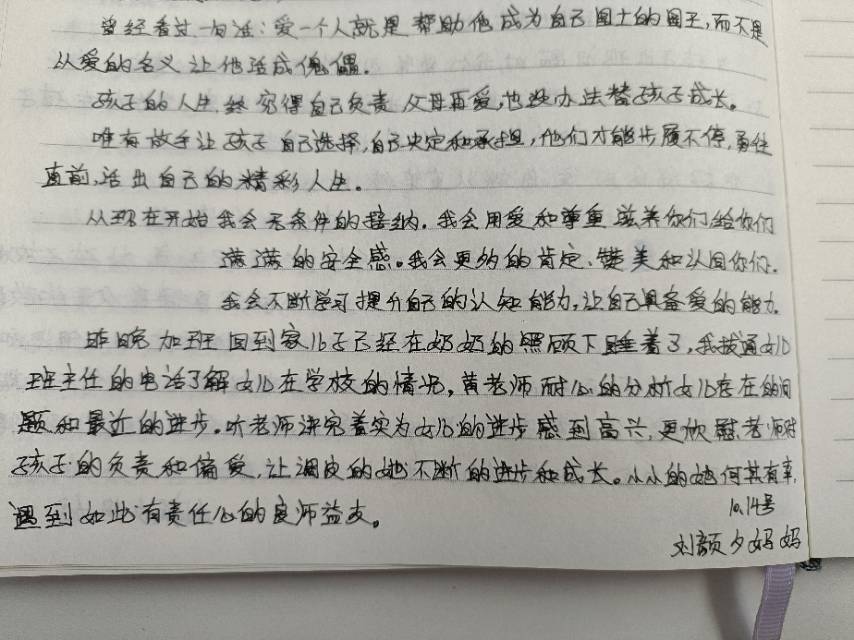 曾经看过一句话：爱一个人就是帮助他成为自己国土的国王，而不是
从爱的名义让他活成傀儡.
孩子的人生终究得自己负责父母再爱,也没办法替孩子成长。
唯有放手让孩子自己选择,自己决定和承担,他们才能步履不停,勇往
直前,活出自己的精彩人生.
从现在开始我会无条件的接纳.我会用爱和尊重滋养你们给你们
满满的安全感。我会更多的肯定、赞美和认同你们.
我会不断学习提升自己的认知能力,让自己具备爱的能力.
昨晚加班回到家儿子已经在奶奶的照顾下睡着了,我拨通女儿
班主任的电话了解女儿在学校的情况,黄老师耐心的分析女儿存在的问
题和最近的进步.听老师讲完着实为女儿的进步感到高兴,更欣慰老师对
孩子的负责和偏爱,让调皮的她不断的进步和成长。小小的她何其有幸,
遇到如此有责任心的良师益友。
10.14号
刘颜夕妈妈